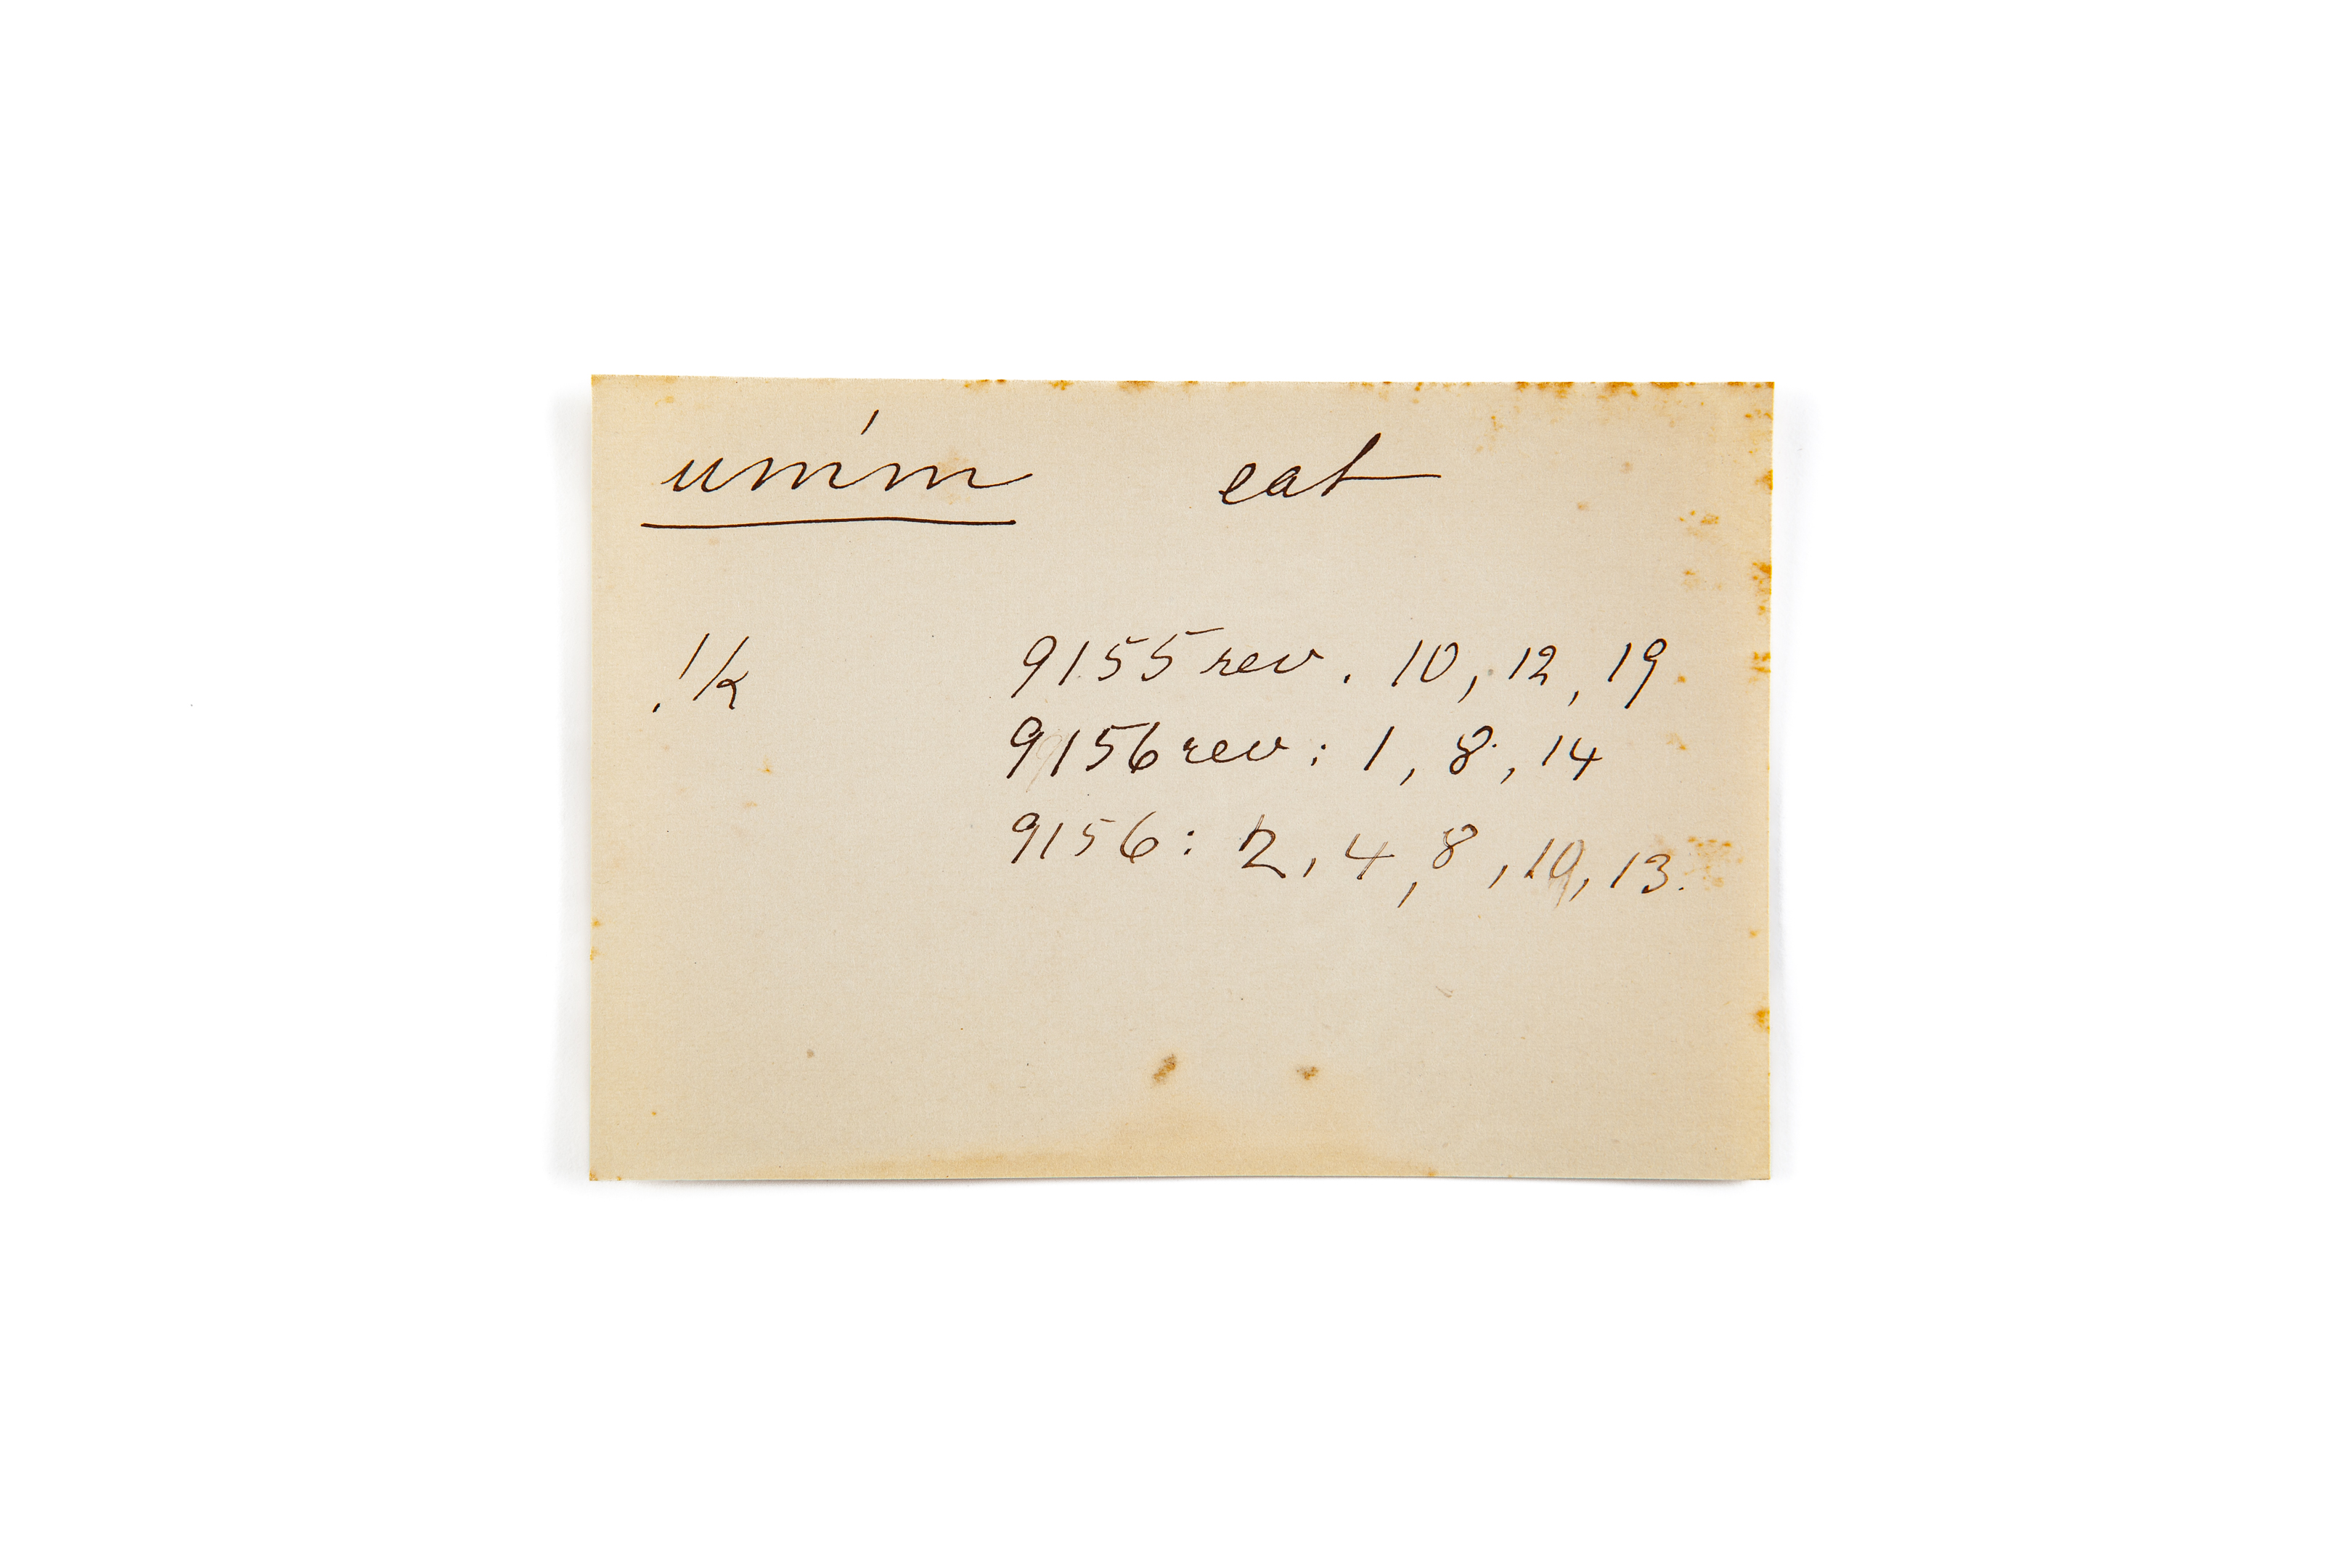 um'm eat
!k 9155 rev. 10, 12, 19.
9156 rev: 1, 8, 14
9156: 2, 4, 8, 10, 13.